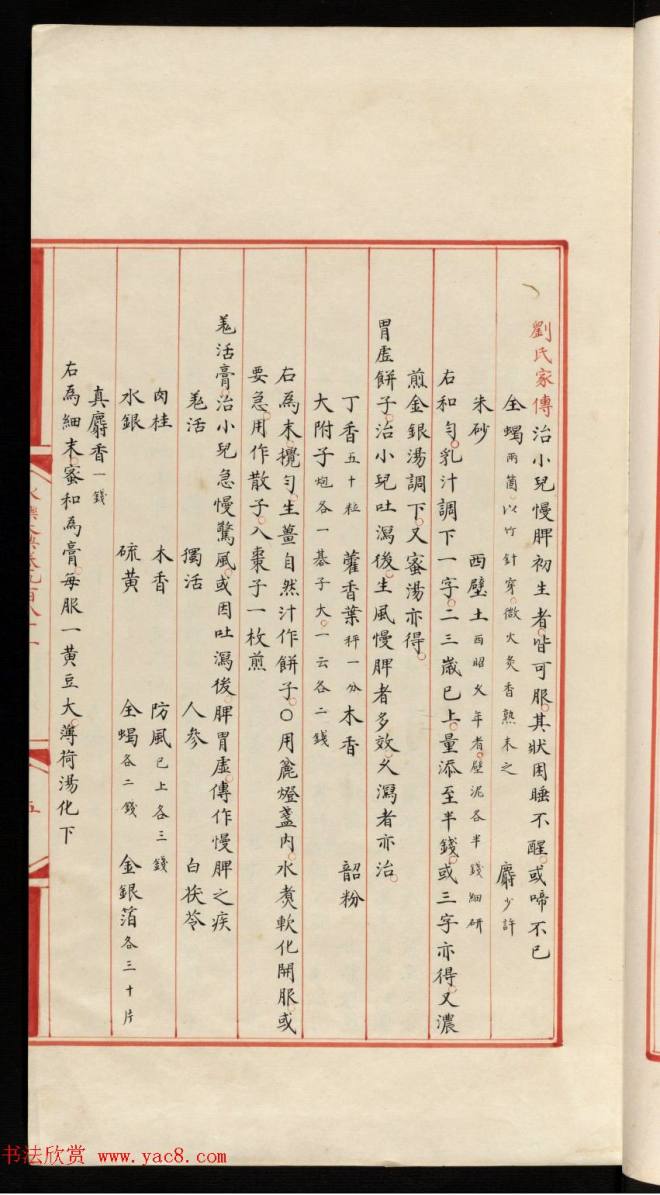 劉氏家傳治小兒慢脾初生者皆可服其狀困睡不醒或啼不已
全蝎兩箇以竹針穿微火炙香熟末之 麝少許
朱砂 西壁土西照久年者壁泥各半錢細研
右和勻乳汁調下一字二三歲已上量添至半錢或三字亦得又濃
煎金銀湯調下又蜜湯亦得
胃虛餅子治小兒吐瀉後生風慢脾者多效久瀉者亦治
丁香五十粒 藿香葉秤一分 木香 韶粉
大附子炮各一棊子大一云各二錢
右為末攪勻生薑自然汁作餅子〇用麄燈盞内水煑軟化開服或
要急用作散子入棗子一枚煎
羗活膏治小兒急慢驚風或因吐瀉後脾胃虛傳作慢脾之疾
羗活 獨活 人參 白茯苓
肉桂 木香 防風已上各三錢
水銀 硫黃 全蝎各二錢 金銀箔各三十片
真麝香一錢
右為細末蜜和為膏每服一黄豆大薄荷湯化下
五
书法欣赏 www.yac8.com